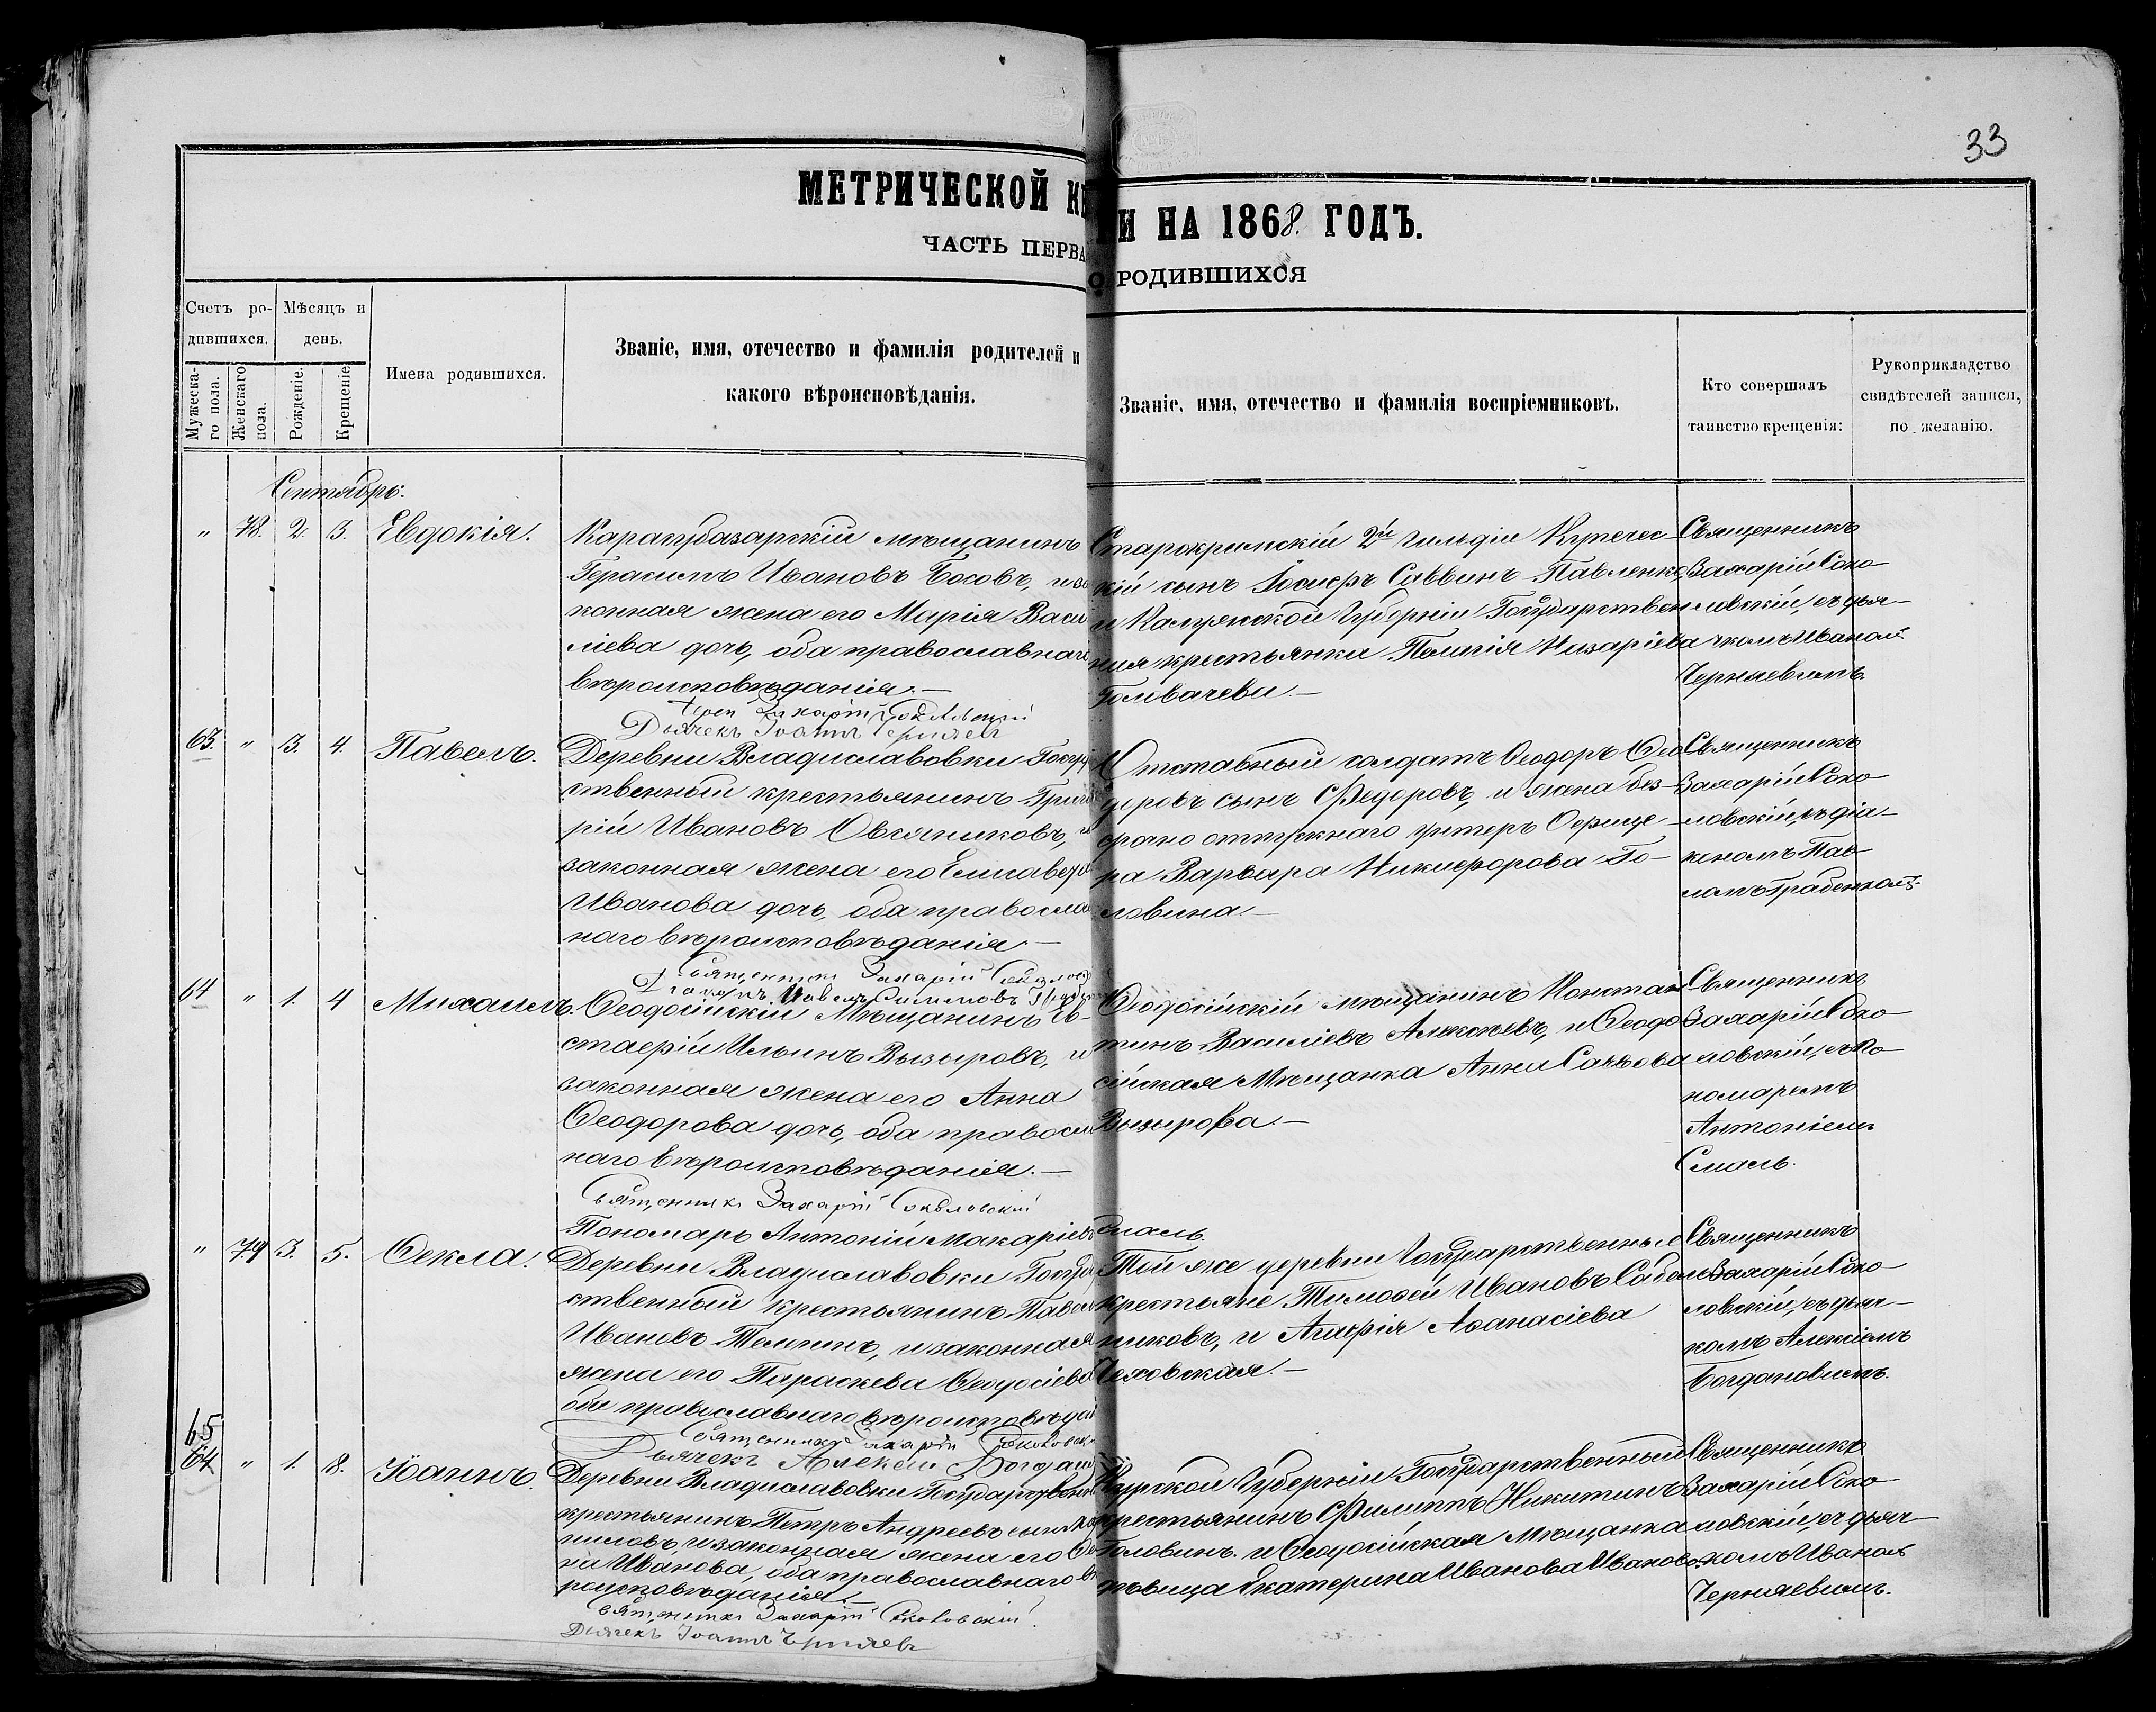 33
МЕТРИЧЕСКОЙ КН
И НА 1868. ГОДЪ.
ЧАСТЬ ПЕРВА
О РОДИВШИХСЯ
Счетъ ро-
дившихся.
Мужеска-
го пола.
Женскаго
пола.
Мѣсяцъ и
день.
Рожденіе.
Крещеніе
Имена родившихся.
Званіе, имя, отечество и фамилія родителей и
какого вѣроисповѣданія.
Званіе, имя, отечество и фамилія воспріемниковъ.
Кто совершалъ
таинство крещенія:
Рукоприкладство
свидѣтелей записи,
по желанію.
Сентябрь.
" 78. 2. 3. Евдокія.
Карасубазарскій мѣщанинъ
Герасимъ Ивановъ Босовъ, и за
конная жена его Марія Васи
ліева дочь, оба православнаго
вѣроисповѣданія.—
Захарій Соколовскій
Дьячекъ Іоаннъ Черняевъ
Старокрымскій 2й гильдіи Купечес
кій сынъ Іосифъ Саввинъ Павленко,
и Калужской Губерніи Государствен
ная крестьянка Пелагія Назаріева
Головачева.—
Священникъ
Захарій Соко
ловскій, съ дья-
чкомъ Иваномъ
Черняевымъ.
63. " 3. 4. Павелъ.
Деревни Владиславовки Госуд
ственный крестьянинъ Григо
рій Ивановъ Овсяниковъ, и
законная жена его Елисавета
Иванова дочь, оба правосла
наго вѣроисповѣданія.—
Священникъ Захарій Соколов
Діаконъ Павелъ
Отставный солдатъ Ѳеодоръ Ѳео
доровъ сынъ Федоровъ, и жена без-
срочно отпускнаго унтеръ Офице-
ра Варвара Никифорова Го-
ловина.—
Священникъ
Захарій Соко
ловскій, съ діа-
кономъ Пав
ломъ Грабенкомъ.
64 " 1. 4 Михаилъ.
Ѳеодосійскій Мѣщанинъ Ев-
стафій Ильинъ Вызыровъ, и
законная жена его Анна
Ѳеодорова дочь, оба правосл
наго вѣроисповѣданія.—
Священникъ Захарій Соколовскій
Пономарь Антоній Макаріевъ
Смаль.
Ѳеодосійскій мѣщанинъ Констан
тинъ Василіевъ Алексѣевъ, и Ѳеодо
сійская Мѣщанка Анна Саввова
Вызырова.—
Священникъ
Захарій Соко
ловскій, съ По
номаремъ
Антоніемъ
Смаль.
" 79 3. 5. Ѳекла.
Деревни Владиславовки Госуда
ственный крестьянинъ Павелъ
Ивановъ Темнинъ, и законная
жена его Параскева Ѳеодосіева
оба православнаго вѣроисповѣдан
Священникъ Захарій Соколовск
Дьячекъ Алексѣй Богдан
Той же деревни Государственные
крестьяне Тимоѳей Ивановъ Сабель
никовъ, и Агафія Аѳанасіева
Чеховская.—
Священникъ
Захарій Соко
ловскій, съ дьяч-
комъ Алексіемъ
Богдановымъ.
65
64 " 1. 8. Іоаннъ.
Деревни Владиславовки Государствен
крестьянинъ Петръ Андреевъ
ниловъ, и законная жена его
на Иванова, оба православнаго вѣ
роисповѣданія.—
Священникъ Захарій Соколовскій
Дьячекъ Іоаннъ Черняевъ
Курской Губерніи Государственный
крестьянинъ Филиппъ Никитинъ
Головинъ. и Ѳеодосійская мѣщанка
дѣвица Екатерина Иванова Иванова.
Священникъ
Захарій Соко
ловскій, съ дьяч-
комъ Иваномъ
Черняевымъ.